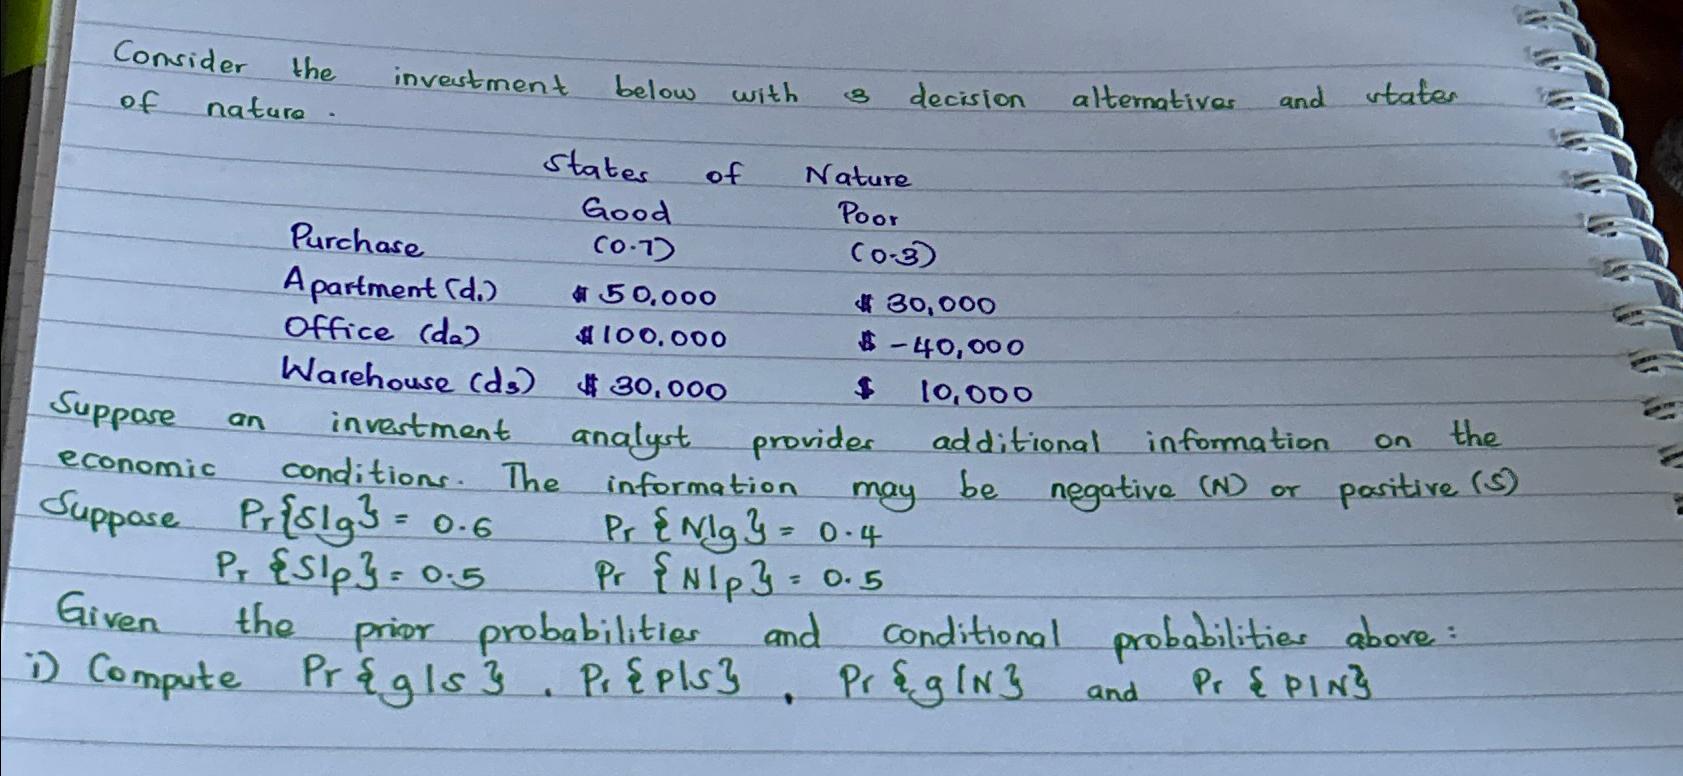 Consider the investment below with 3 decision alternatives and states
of nature.
States of Nature
Good Poor
Purchase (0.7) (0.3)
Apartment (d₁) $ 50,000 $ 30,000
Office (d₂) $ 100,000 $ -40,000
Warehouse (d₃) $ 30,000 $ 10,000
Suppose an investment analyst provides additional information on the
economic conditions. The information may be negative (N) or positive (S)
Suppose Pr{S|g} = 0.6 Pr{N|g} = 0.4
Pr{S|p} = 0.5 Pr{N|p} = 0.5
Given the prior probabilities and conditional probabilities above:
i) Compute Pr{g|s}, Pr{p|s}, Pr{g|N} and Pr{p|N}